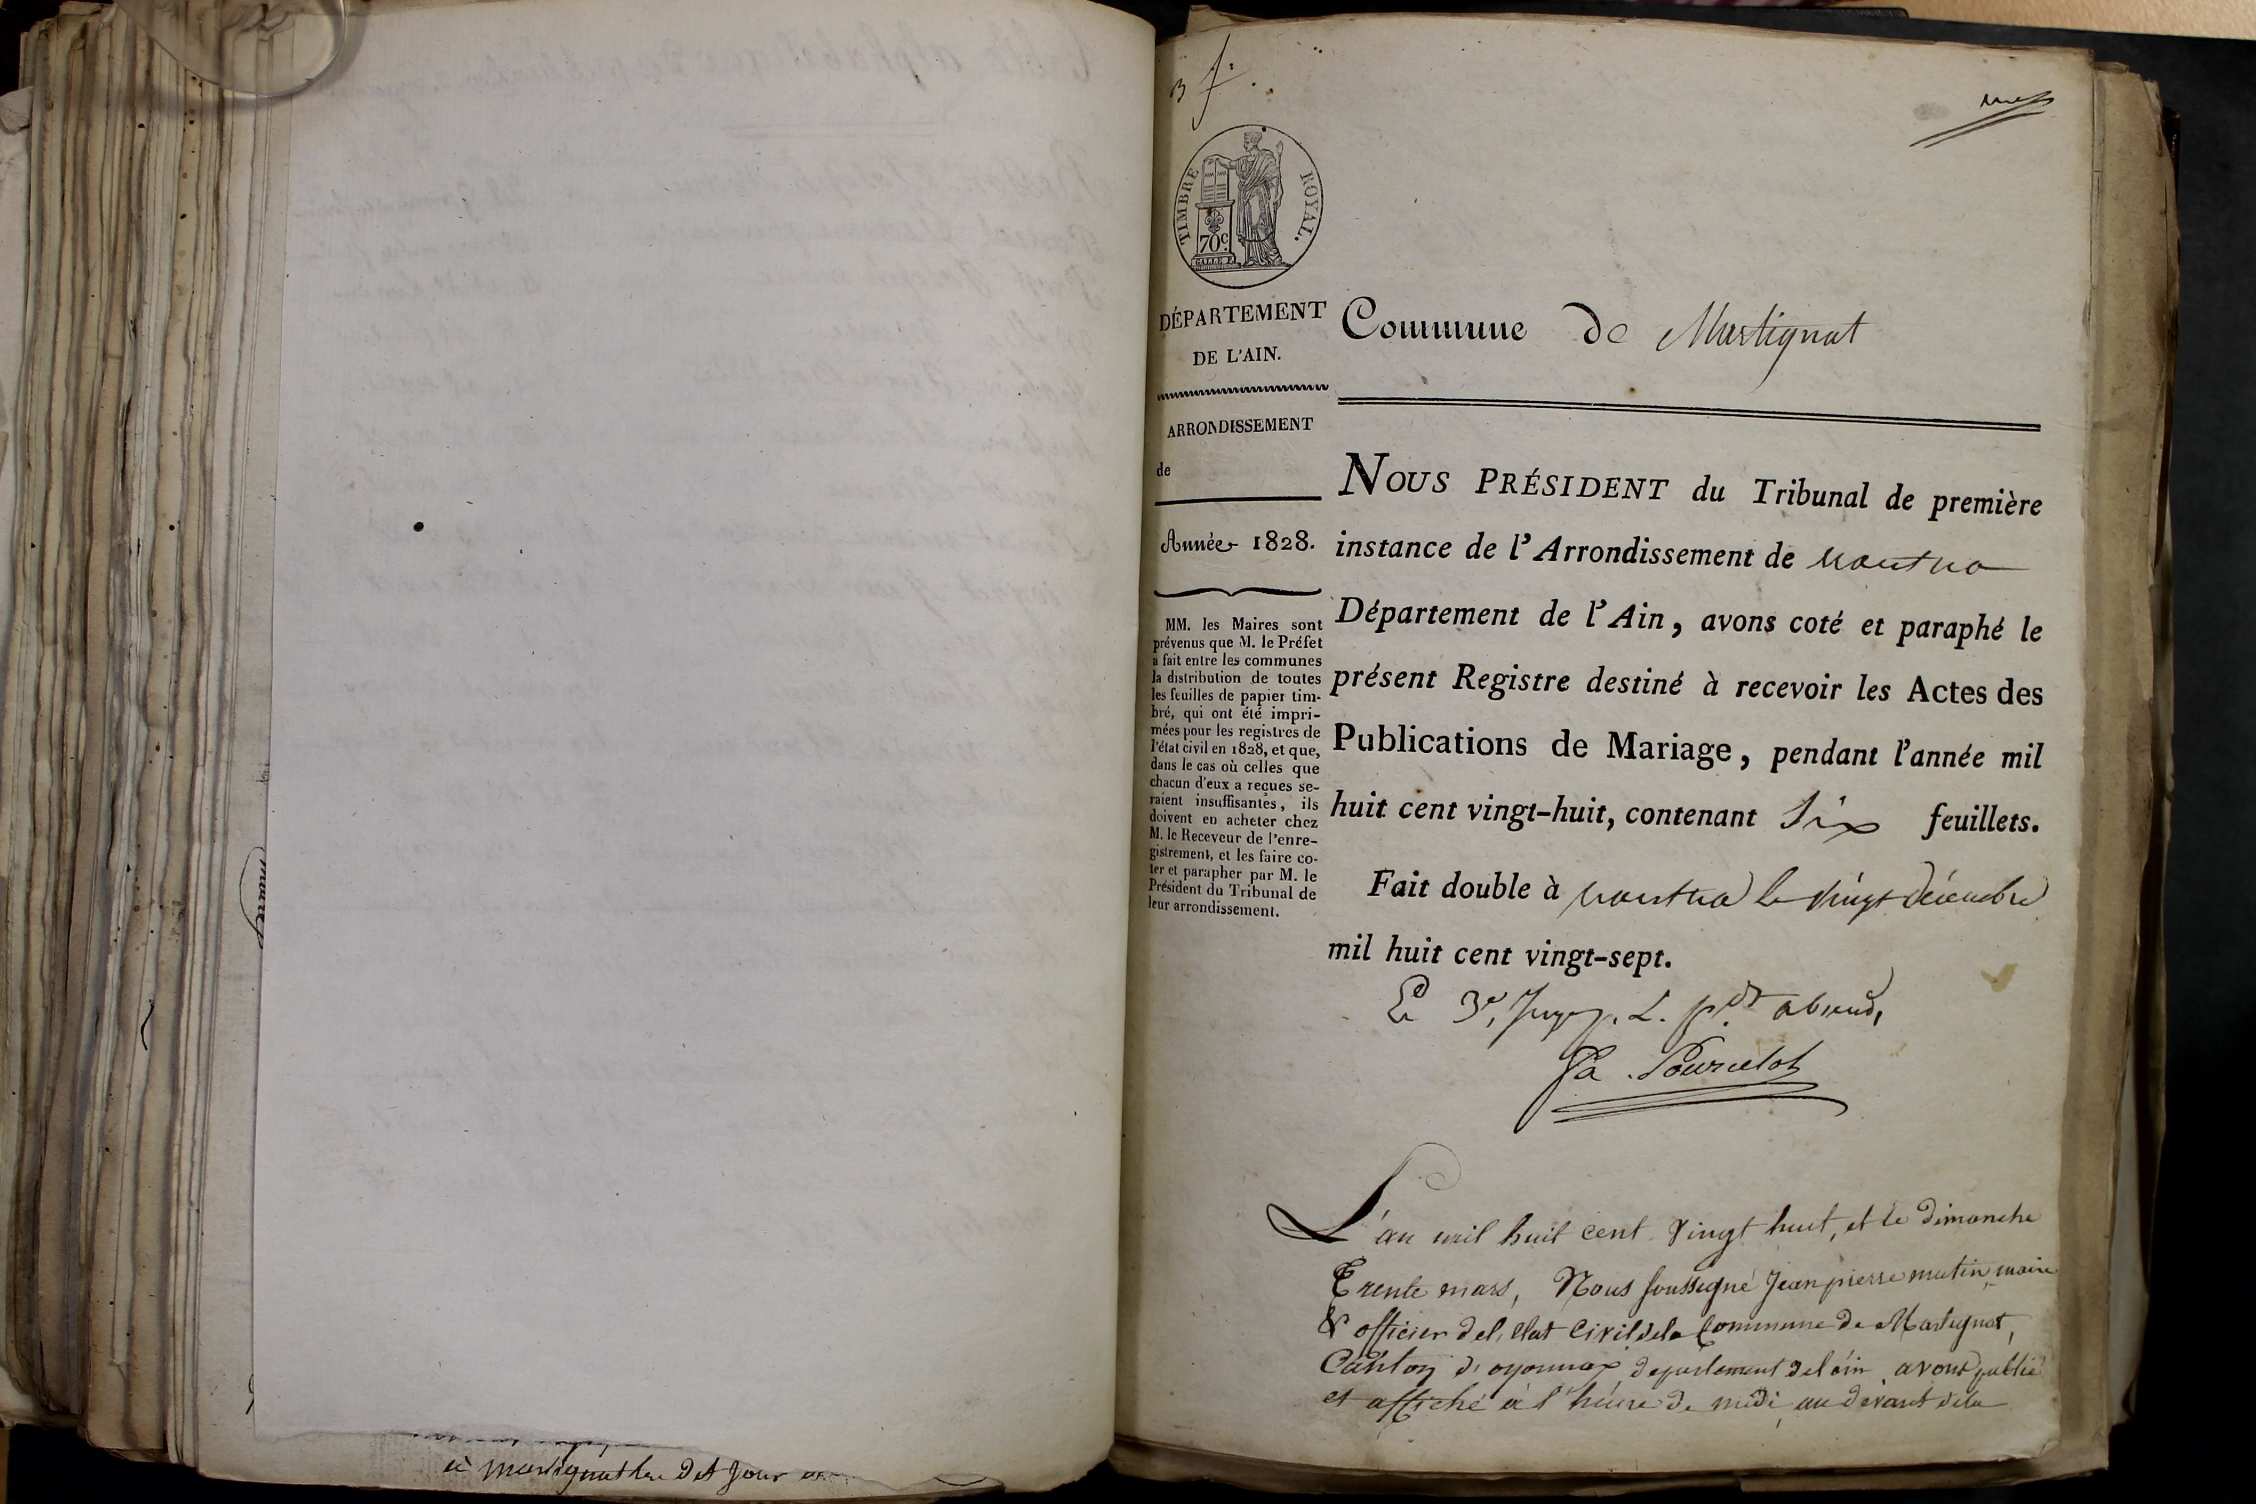 à martignat les dit jour
TIMBRE ROYAL.
70c
DÉPARTEMENT
DE L'AIN.
ARRONDISSEMENT
de
Année 1828.
MM. les Maires sont
prévenus que M. le Préfet
a fait entre les communes
la distribution de toutes
les feuilles de papier tim-
bré, qui ont été impri-
mées pour les registres de
l'état civil en 1828, et que,
dans le cas où celles que
chacun d'eux a reçues se-
raient insuffisantes, ils
doivent en acheter chez
M. le Receveur de l'enre-
gistrement, et les faire co-
ter et parapher par M. le
Président du Tribunal de
leur arrondissement.
Commune de Martignat
NOUS PRÉSIDENT du Tribunal de première
instance de l'Arrondissement de nantua
Département de l'Ain, avons coté et paraphé le
présent Registre destiné à recevoir les Actes des
Publications de Mariage, pendant l'année mil
huit cent vingt-huit, contenant Six feuillets.
Fait double à nantua le vingt décembre
mil huit cent vingt-sept.
Le 3e, Juge, L. pdt absend,
Pourcelot
L'an mil huit cent vingt huit, et le dimanche
Trente mars, Nous soussigné Jean pierre mutin maire
& officier del, Etat Civil dela Commune de Martignat,
Canton d'oyonnax, departement del'ain avons publié
et affiché à l'héure de midi au devant dela